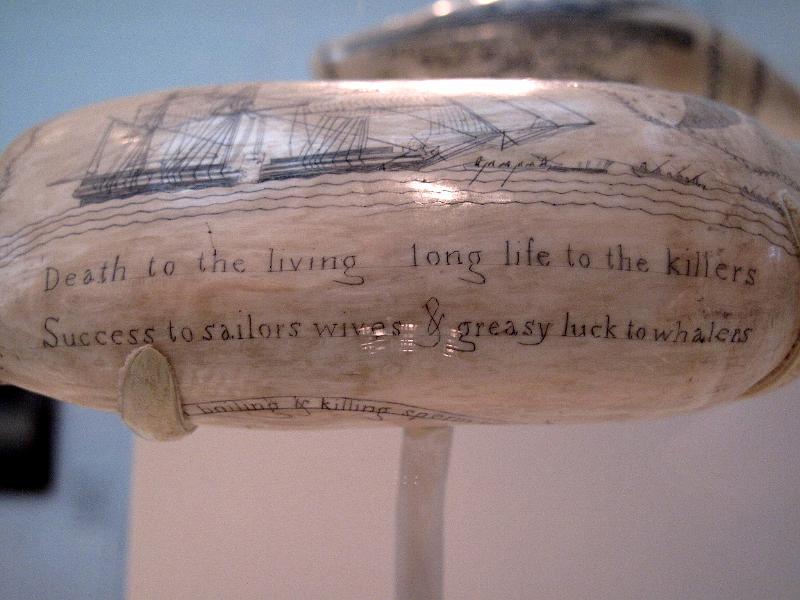 Death to the living long life to the killers
Success to sailors wives & greasy luck to whalers
boiling & killing sperm